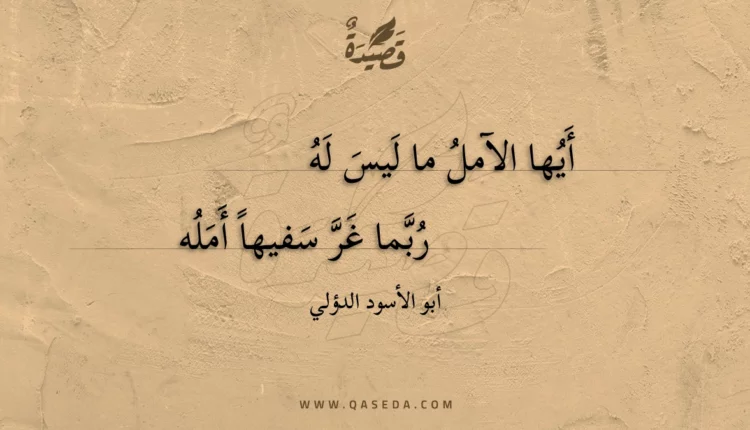 قَصِيدَةٌ
أَيُها الآملُ ما لَيسَ لَهُ
رُبَّما غَرَّ سَفيهاً أَمَلُه
أبو الأسود الدؤلي
WWW.QASEDA.COM